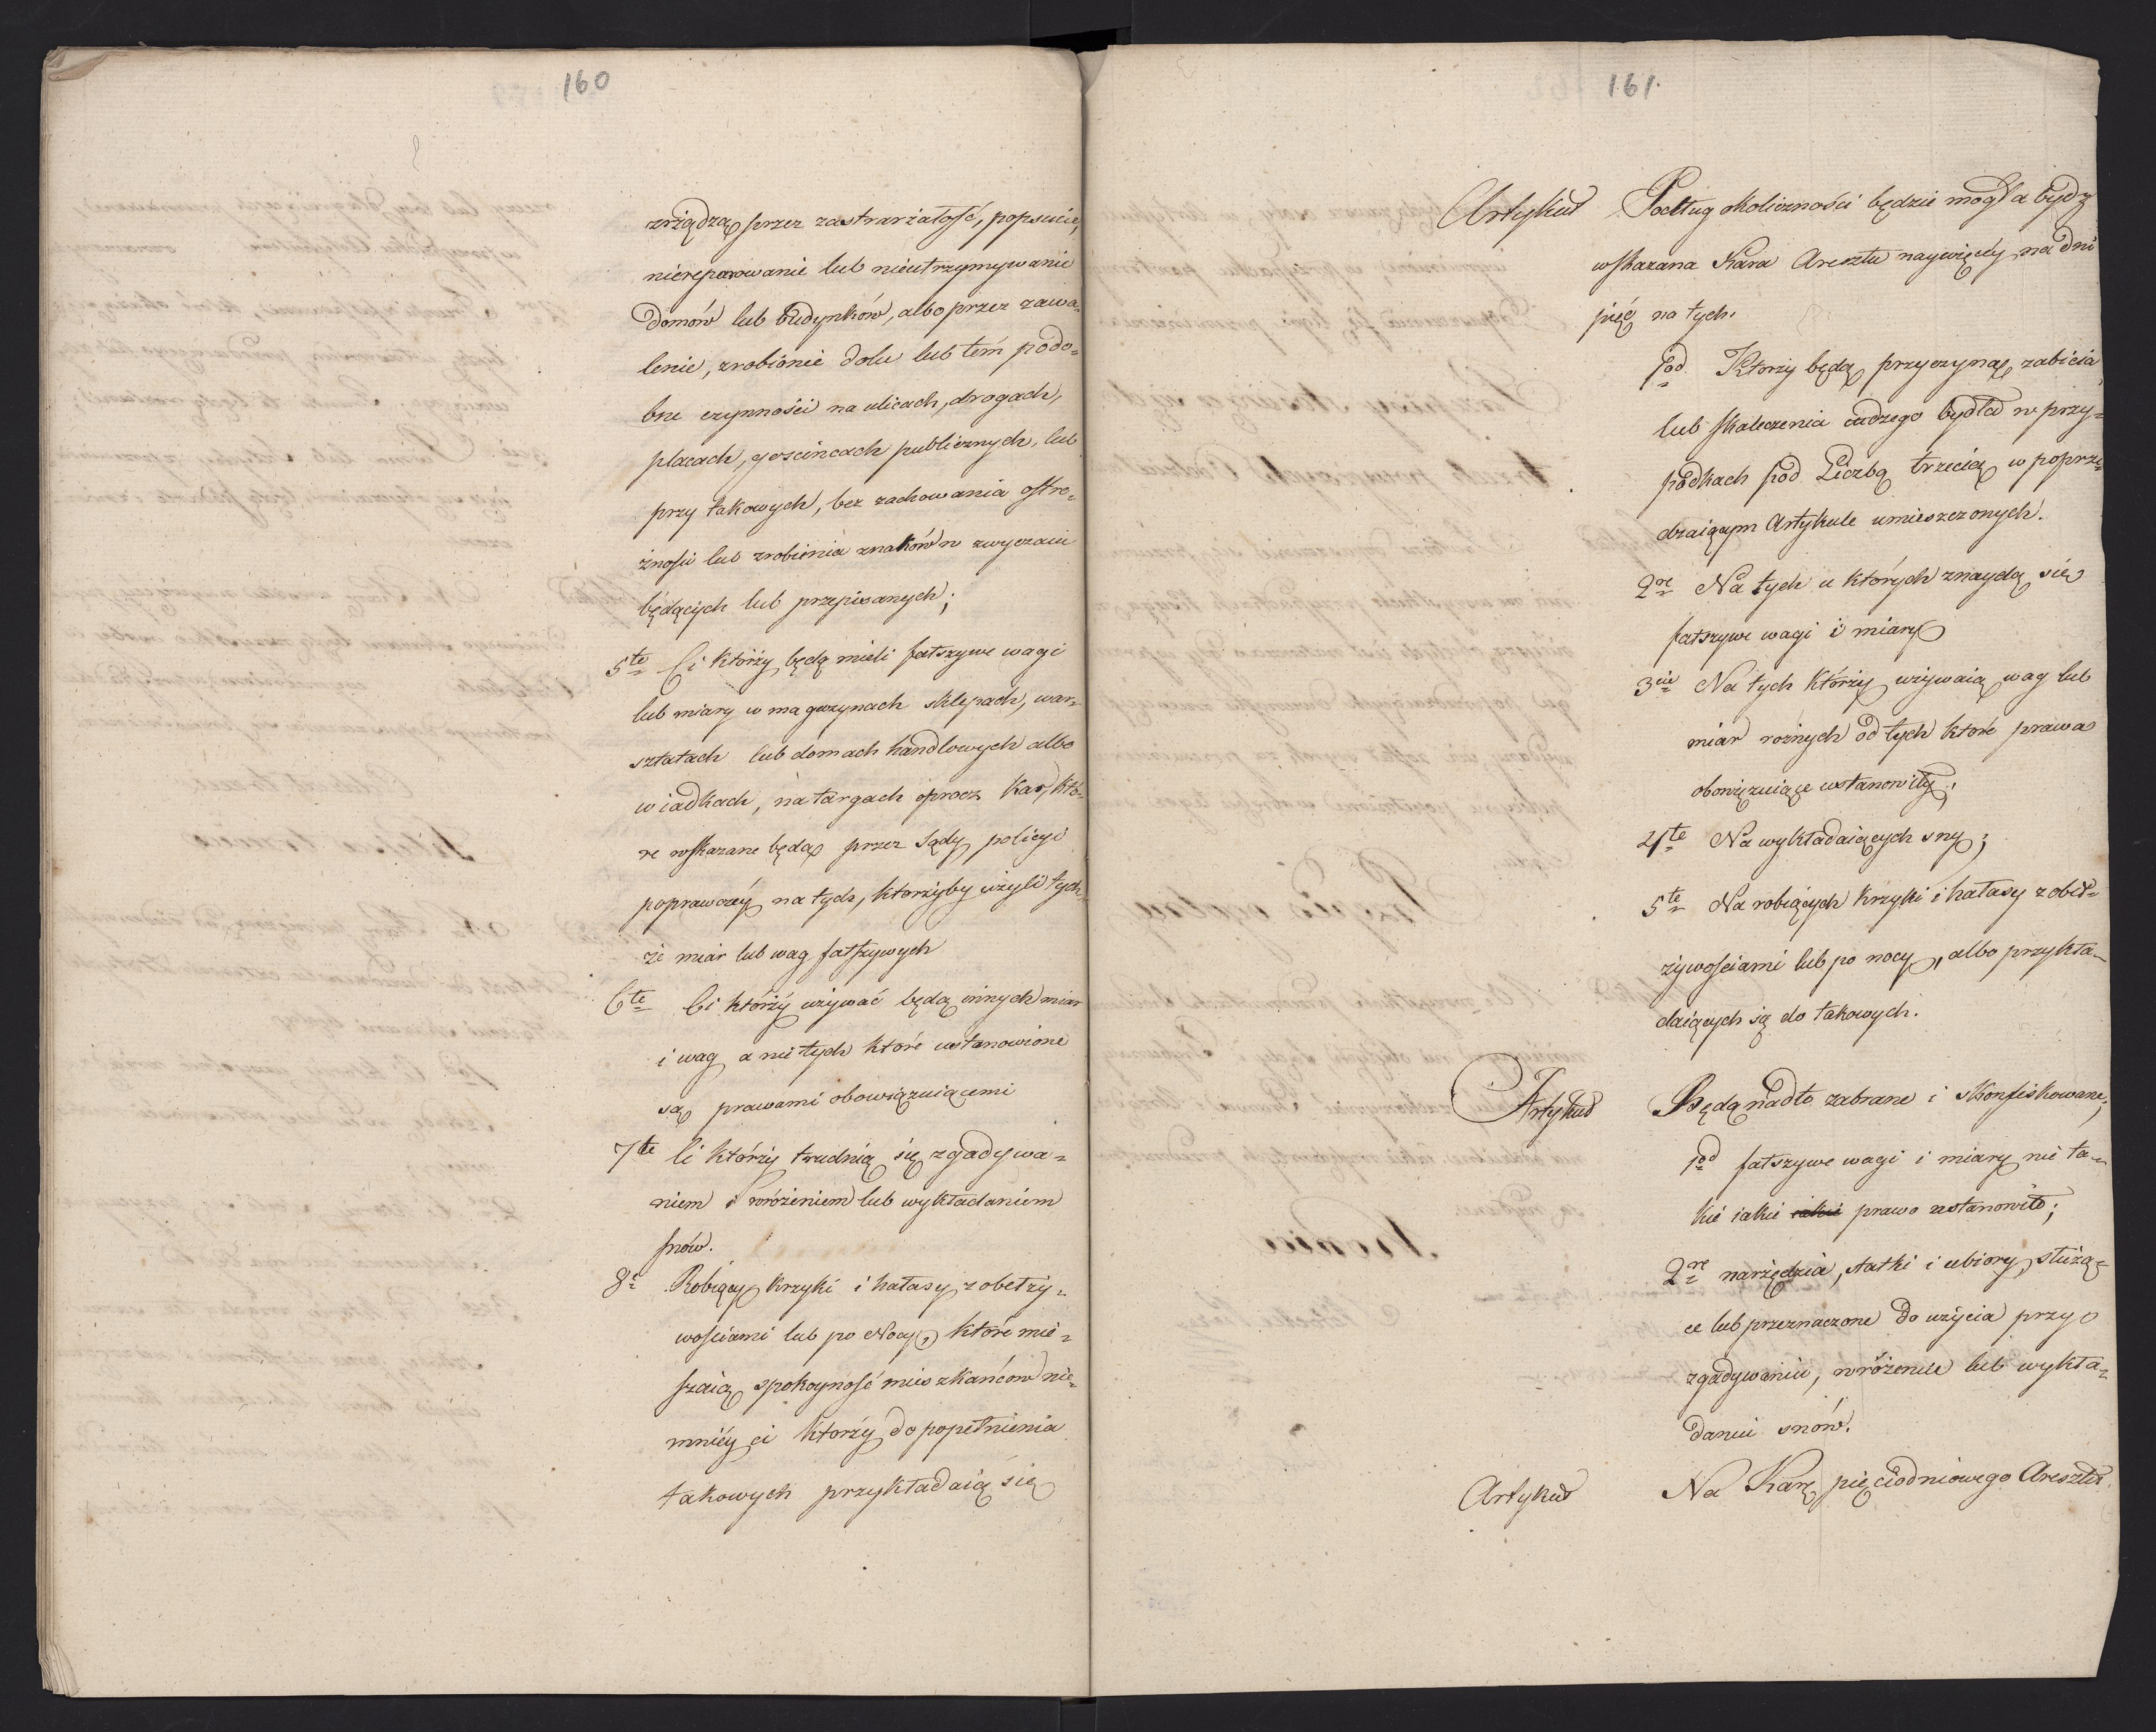 160
zrządzą przez zastrarzałość, popsucie,
niereparowanie lub nieutrzymywanie
domów lub budynków, albo przez zawa-
lenie, zrobienie dołu lub tem podo-
bne czynności na ulicach, drogach,
placach, gościncach publicznych, lub
przy takowych, bez zachowania ostro-
żności lub zrobienia znaków w zwyczaiu
będących lub przepisanych;
5te Ci którzy będą mieli fałszywe wagi
lub miary w magazynach sklepach, war-
sztatach lub domach handlowych albo
w iadkach, na targach oprocz kar, któ-
re wskazane będą przez Sądy policyi
poprawczey na tych, ktorzyby użyli tych-
że miar lub wag fałszywych
6te Ci którzy używać będą innych miar
i wag a nie tych które ustanowione
są prawami obowiązuiącemi
7te Ci którzy trudnią się zgadywa-
niem i wróżeniem lub wykładaniem
snów.
8e Robiący krzyki i hałasy z obelży-
wościami lub po Nocy, które mie-
szaią spokoyność mieszkańców nie-
mniéy ci którzy do popełnienia
takowych przykładaią się
161.
Artykuł Podług okoliczności będzie mogła bydź
wskazana Kara Aresztu naywięcéy na dni
pięć na tych.
1od Którzy będą przyczyną zabicia,
lub skaleczenia cudzego bydła w przy-
padkach pod Liczbą trzecią w poprze-
dzaiącym Artykule umieszczonych.
2re Na tych u których znaydą się
fałszywe wagi i miary
3cie Na tych którzy używaią wag lub
miar rożnych od tych które prawa
obowiązuiące ustanowiły;
4te Na wykładaiących sny;
5te Na robiących krzyki i hałasy z obel-
żywościami lub po nocy, albo przykła-
daiących się do takowych.
Artykuł Będą nadto zabrane i skonfiskowane;
1od fałszywe wagi i miary nie ta-
kie iakie iakie prawo ustanowiło;
2re narzędzia, statki i ubiory, służą-
ce lub przeznaczone do użycia przy
zgadywaniu, wróżeniu lub wykła-
daniu snów.
Artykuł Na Karę pięciodniowego Aresztu